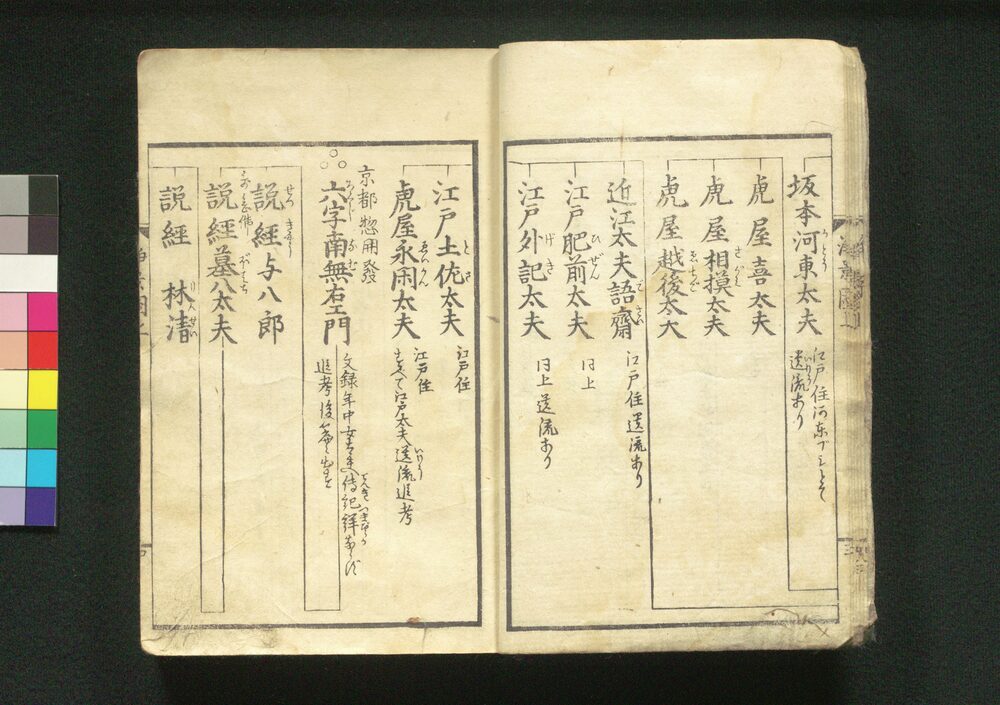 坂本河東太夫
江戸住河東ブシとて
遺流あり
虎屋喜太夫
虎屋相摸太夫
虎屋越後太夫
近江太夫語齋
江戸住遺流あり
江戸肥前太夫
同上
江戸外記太夫
同上遺流あり
江戸土佐太夫
江戸住
虎屋永閑太夫
江戸住
すべて江戸太夫遺流追考
京都惣開發
六字南無右エ門
文録年中女太夫傳紀詳ならず
追考後篇に出す
説經与八郎
説經墓八太夫
説經 林清